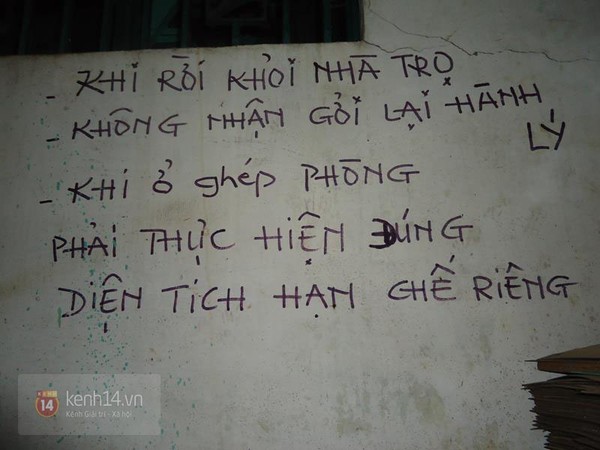 - KHI RỜI KHỎI NHÀ TRỌ
- KHÔNG NHẬN GỎI LẠI HÀNH
LÝ
- KHI Ở ghép PHÒNG
PHẢI THỰC HIỆN ĐÚNG
DIỆN TÍCH HẠN CHẾ RIÊNG
14 kenh14.vn
Kênh Giải trí - Xã hội